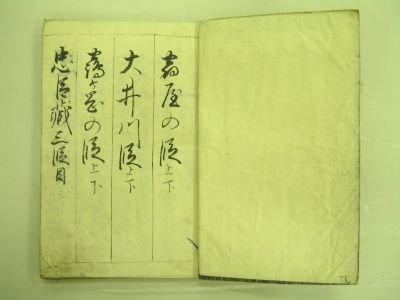 宿屋の段上下
大井川段上下
の段上下
忠臣藏三段目